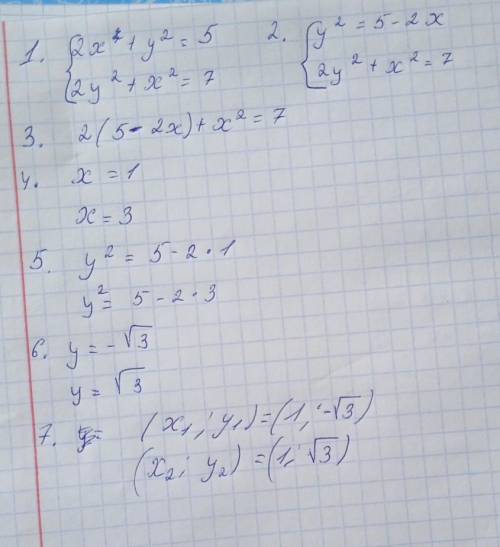 1. {2x² + y² = 5
2y² + x² = 7
2. {y² = 5 - 2x
2y² + x² = 7
3. 2(5 - 2x) + x² = 7
4. x = 1
x = 3
5. y² = 5 - 2 · 1
y² = 5 - 2 · 3
6. y = -√3
y = √3
7. (x₁; y₁) = (1; -√3)
(x₂; y₂) = (1; √3)